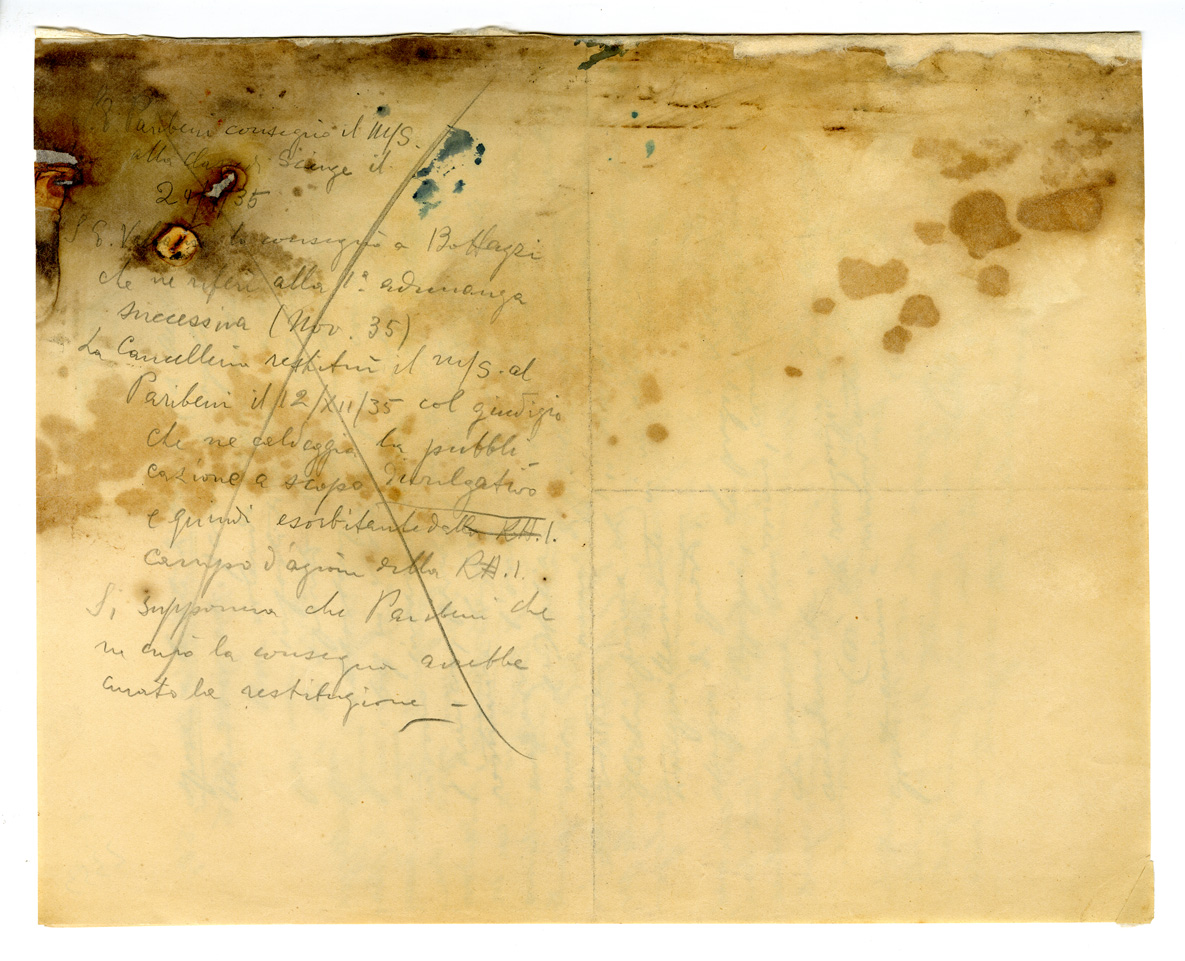 S. E. Paribeni consegnò il M/S.
alla Classe di Scienze il
24/ /35
S. E. V lo consegnò a Bottazzi
che ne riferì alla 1ª adunanza
successiva (Nov. 35)
La Cancelleria restituì il M/S. al
Paribeni il 12/XII/35 col giudizio
che ne la pubbli
cazione a scopo divulgativo
e quindi esorbitante dalla R.A.I.
campo d'azione della R.A.I.
Si supponeva che Paribeni che
ne curò la consegna avrebbe
curato la restituzione –